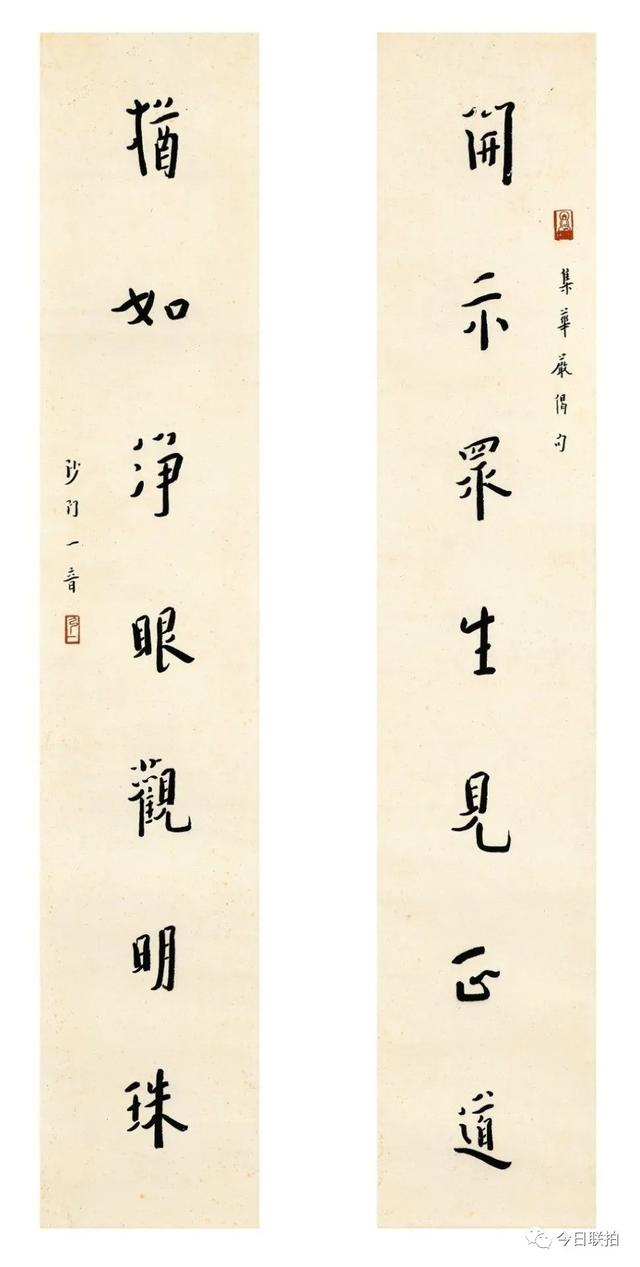 開示眾生見正道
集華嚴偈句
猶如淨眼觀明珠
沙門一音
今日联拍